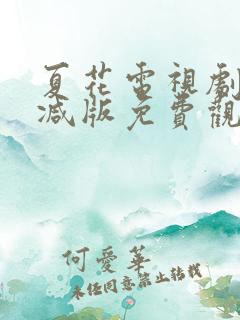 夏花電視劇
減版免費觀
何愛華
未经同意禁止转载